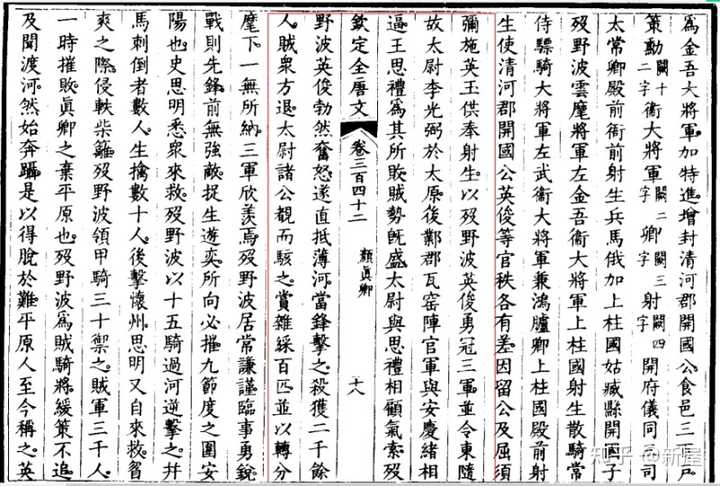 爲金吾大將軍加特進增封清河郡開國公食邑三百戶
策勳闕十二字衞大將軍闕二字卿闕三字射闕四字開府儀同三司
太常卿殿前衙前射生兵馬俄加上柱國姑臧縣開國子
歿野波雲麾將軍左金吾衞大將軍上柱國射生散騎常
侍驃騎大將軍左武衞大將軍兼鴻臚卿上柱國殿前射
生使清河郡開國公英俊等官秩各有差因留公及屈須
彌施英玉供奉射生以歿野波英俊勇冠三軍並令東隨
故太尉李光弼於太原後鄴郡瓦窑陣官軍與安慶緒相
逼王思禮爲其所敗賊勢旣盛太尉與思禮相顧氣索歿
欽定全唐文 卷三百四十二 顏眞卿 十八
野波英俊勃然奮怒遂直抵薄河當鋒擊之殺獲二千餘
人賊衆方退太尉諸公觀而駭之賞雜綵百匹並以轉分
麾下一無所納三軍欣羨焉歿野波居常謙謹臨事勇銳
戰則先鋒前無強敵捉生遊奕所向必摧九節度之圍安
陽也史思明悉衆來救歿野波以十五騎過河逆擊之幷
馬刺倒者數人生擒數十人後擊懷州思明又自來救昏
爽之際侵軼柴籬歿野波領甲騎三十禦之賊軍三千人
一時摧敗眞卿之棄平原也歿野波爲賊騎將緩策不追
及聞渡河然始奔躡是以得脫於難平原人至今稱之英
知乎 @新屋